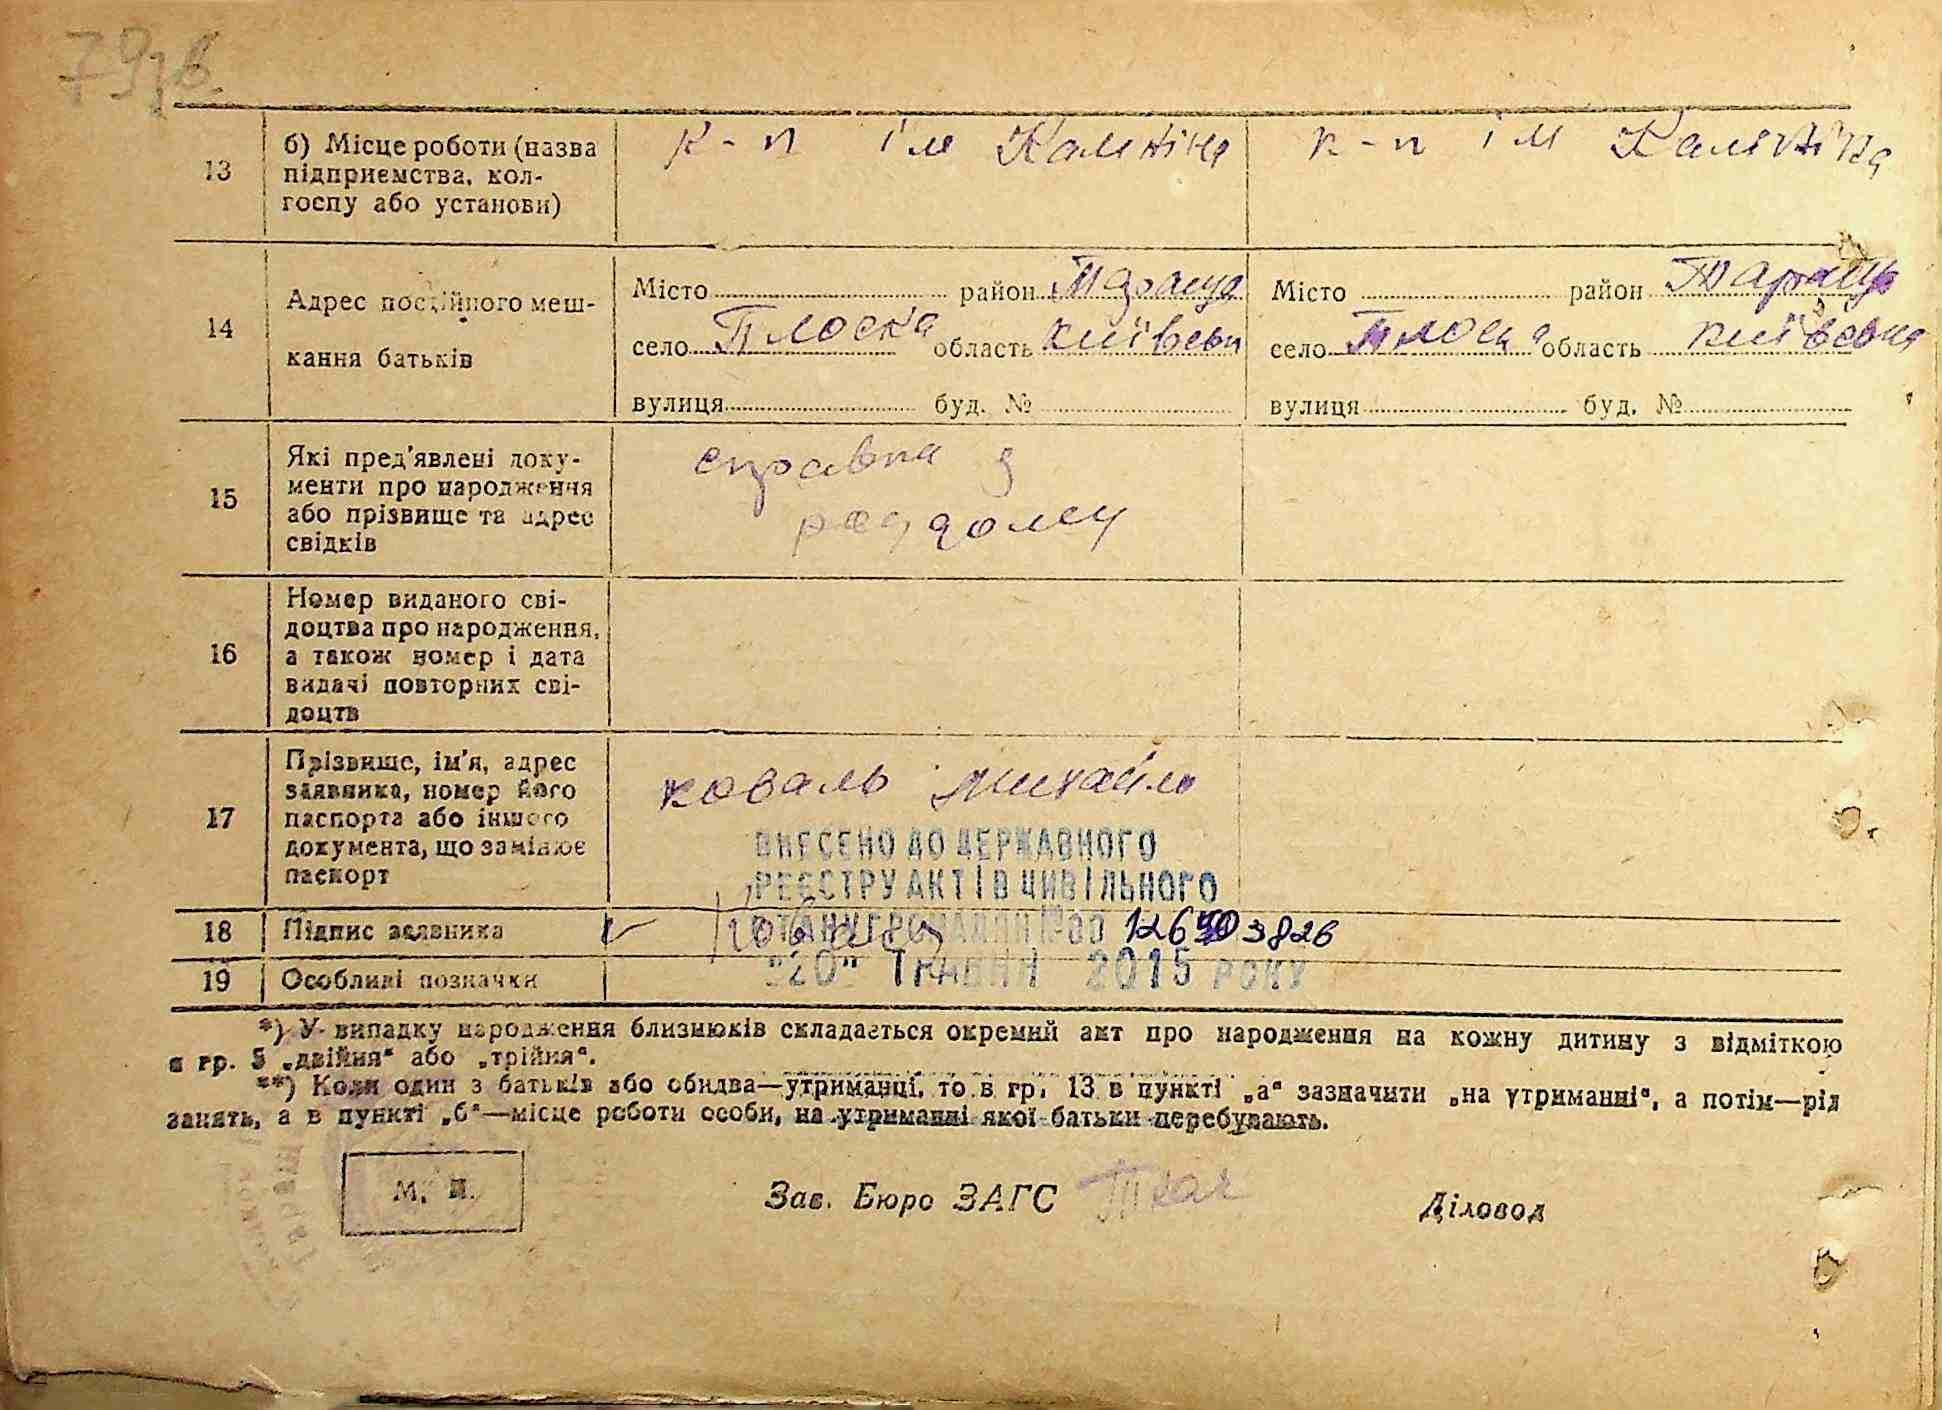 79зв.
13
б) Місце роботи (назва
підприємства, кол-
госпу або установи)
к-п ім Калініна
к-п ім Калініна
14
Адрес постійного меш-
кання батьків
Місто район Тараща
село Плоска область Київськ
вулиця буд. №
Місто район Тараща
село Плоска область Київська
вулиця буд. №
15
Які пред'явлені доку-
менти про народження
або прізвище та адрес
свідків
справка з
род дому
16
Номер виданого сві-
доцтва про народження,
а також номер і дата
видачі повторних сві-
доцтв
17
Прізвище, ім'я, адрес
заявника, номер його
паспорта або іншого
документа, що замінює
паспорт
коваль михайло
ВНЕСЕНО ДО ДЕРЖАВНОГО
РЕЄСТРУ АКТІВ ЦИВІЛЬНОГО
СТАНУ ГРОМАДЯН № 00 3826
"20" ТРАВНЯ 2015 РОКУ
18
Підпис заявника
Коваль
19
Особливі позначки
*) У випадку народження близнюків складається окремий акт про народження на кожну дитину з відміткою
в гр. 5 „двійня“ або „трійня“.
**) Коли один з батьків або обидва—утриманці, то в гр. 13 в пункті „а“ зазначити „на утриманні“, а потім—рід
занять, а в пункті „б“—місце роботи особи, на утриманні якої батьки перебувають.
М. П.
Зав. Бюро ЗАГС Ткач
Діловод